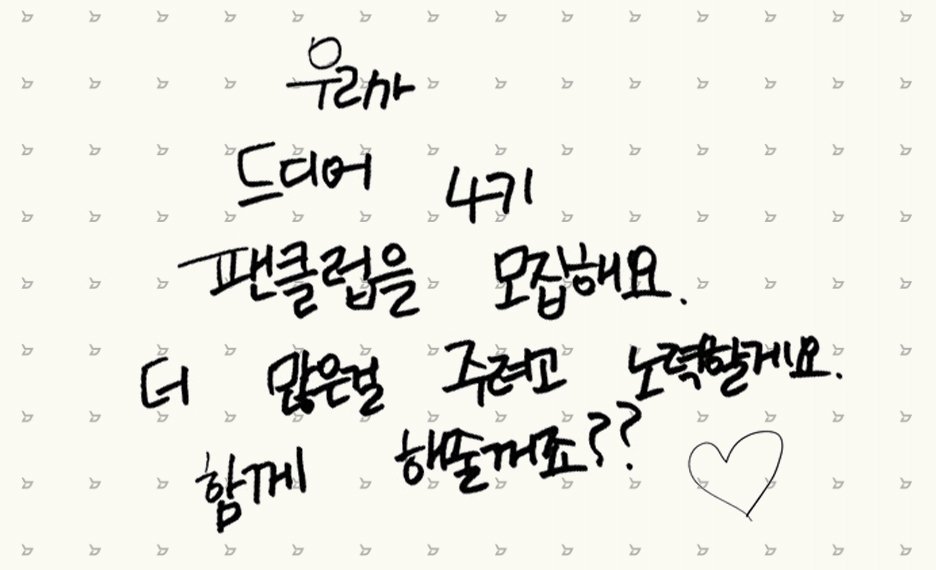 우리가
드디어 4기
팬클럽을 모집해요.
더 많은걸 주려고 노력할게요.
함께 해줄꺼죠??